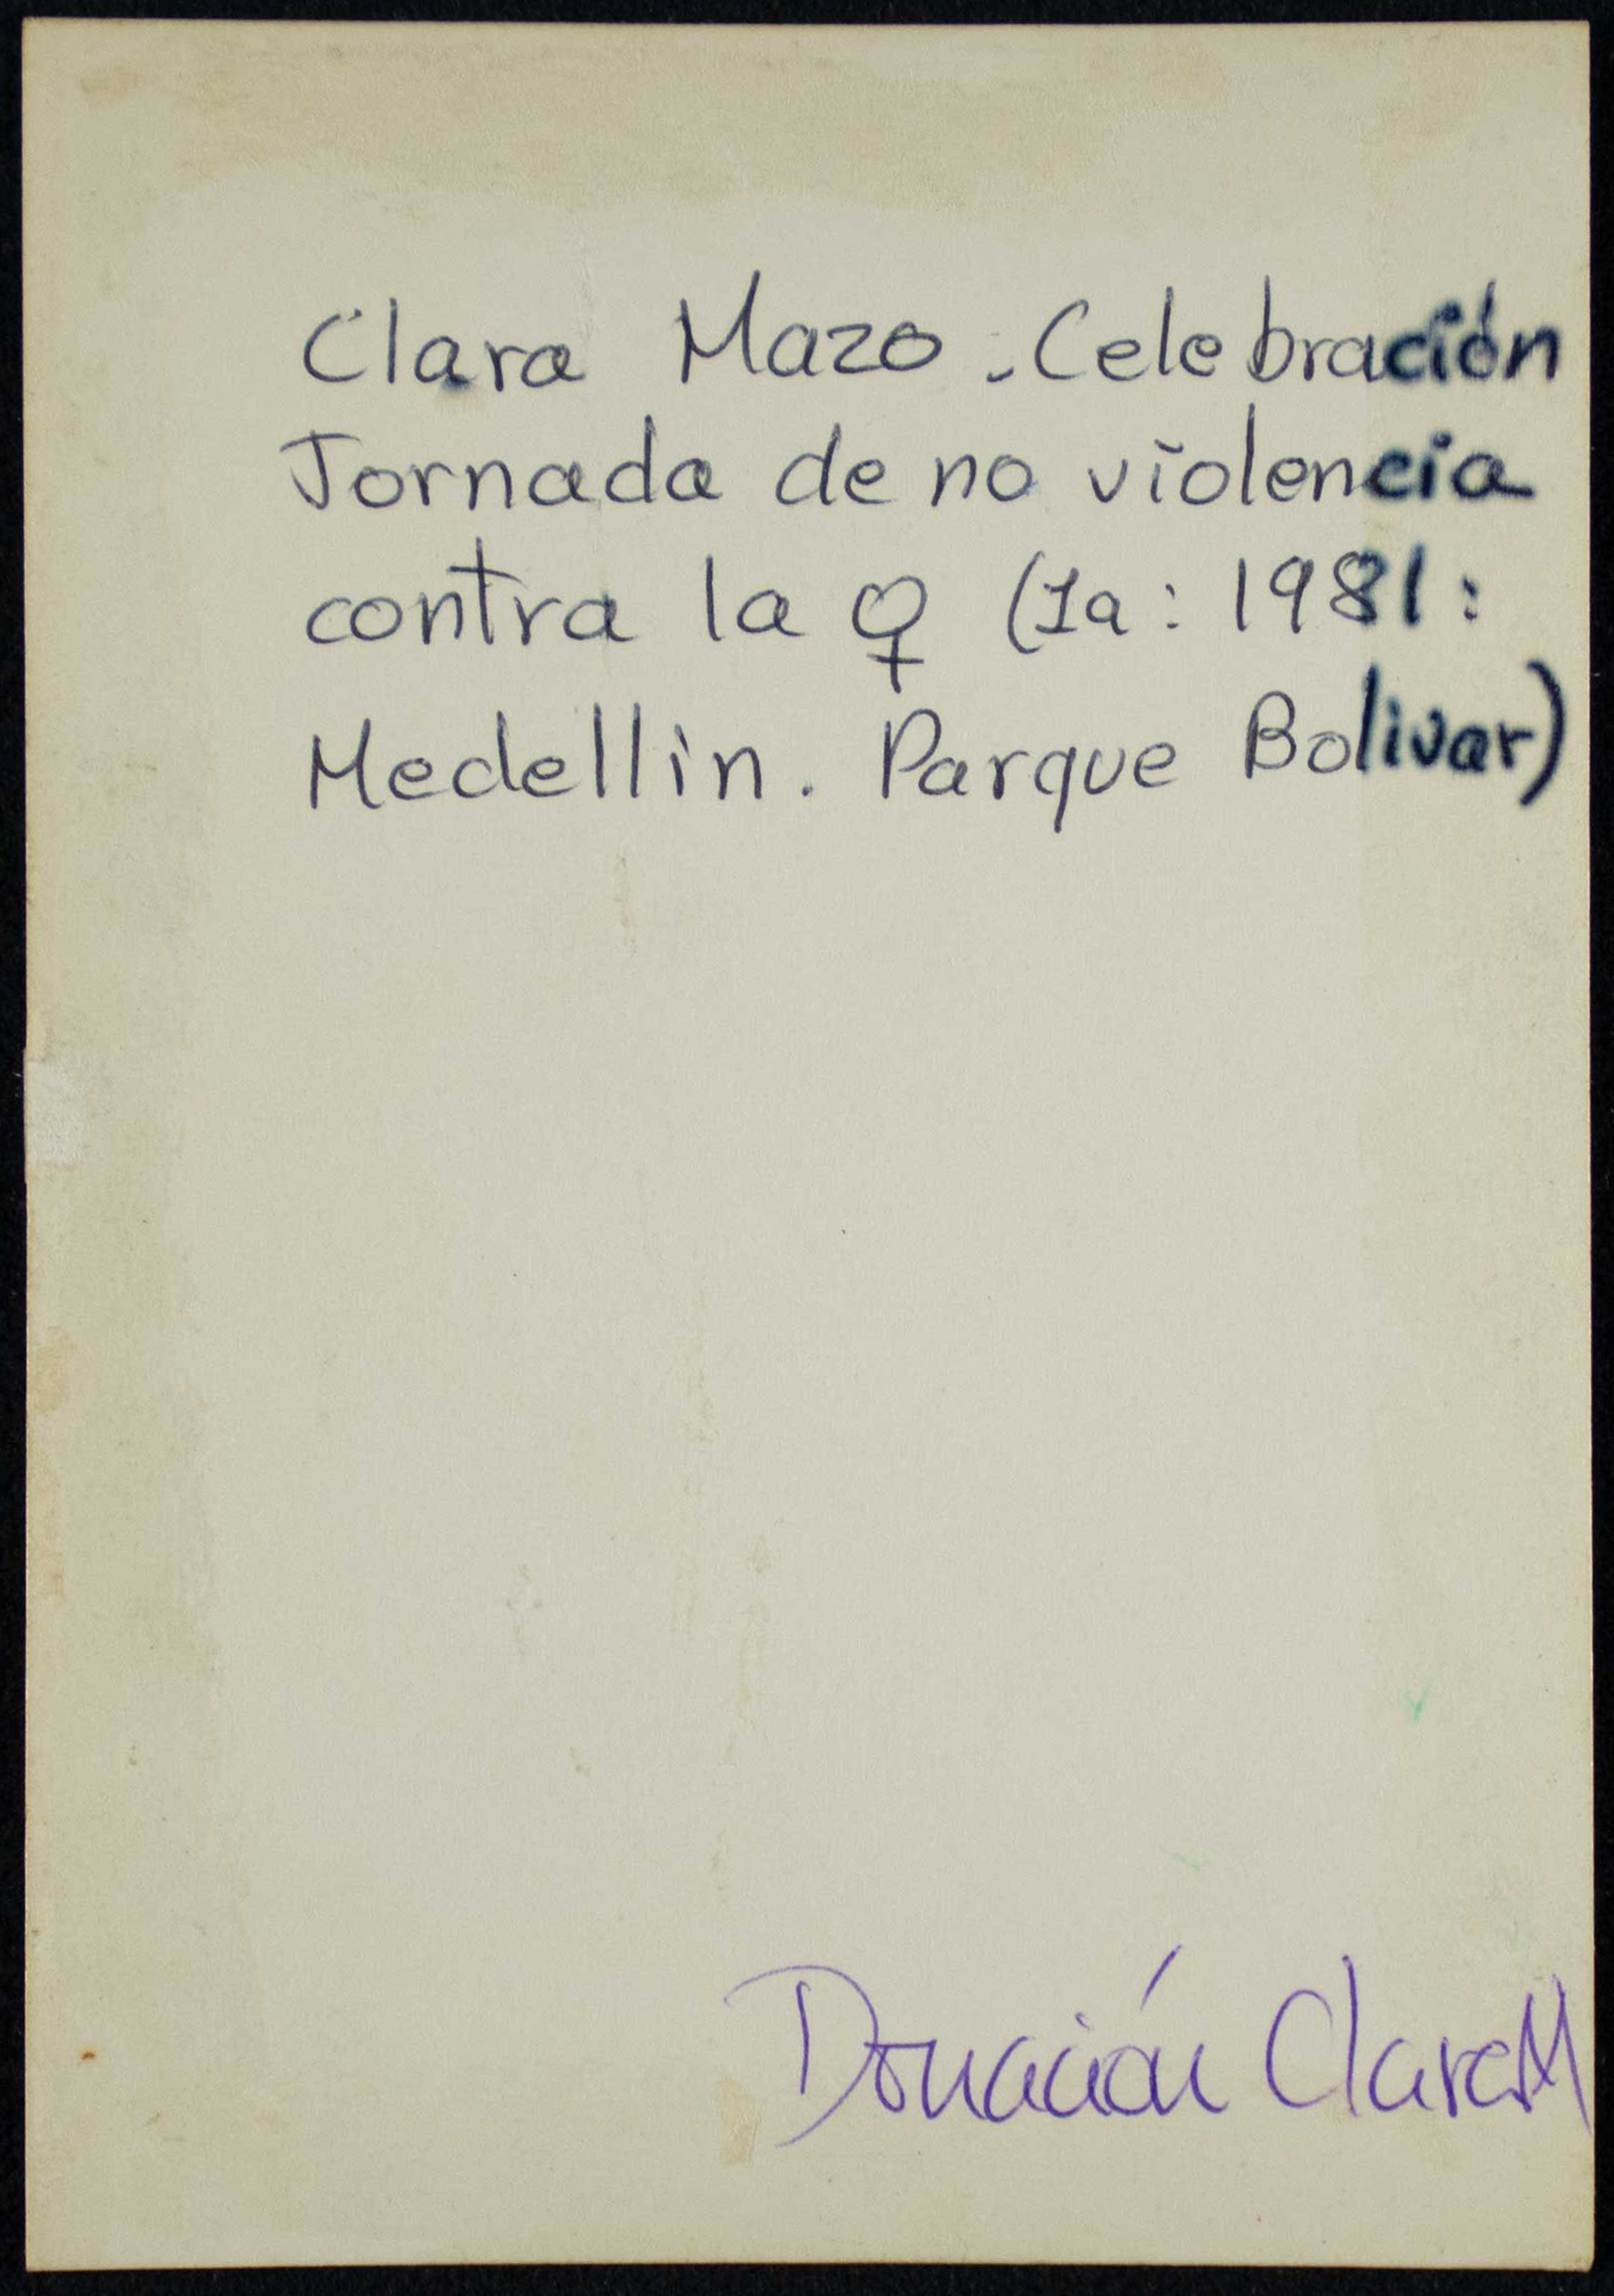 Clara Mazo. Celebración
Jornada de no violencia
contra la ♀ (1a: 1981:
Medellin. Parque Bolivar)
Donación Clara M